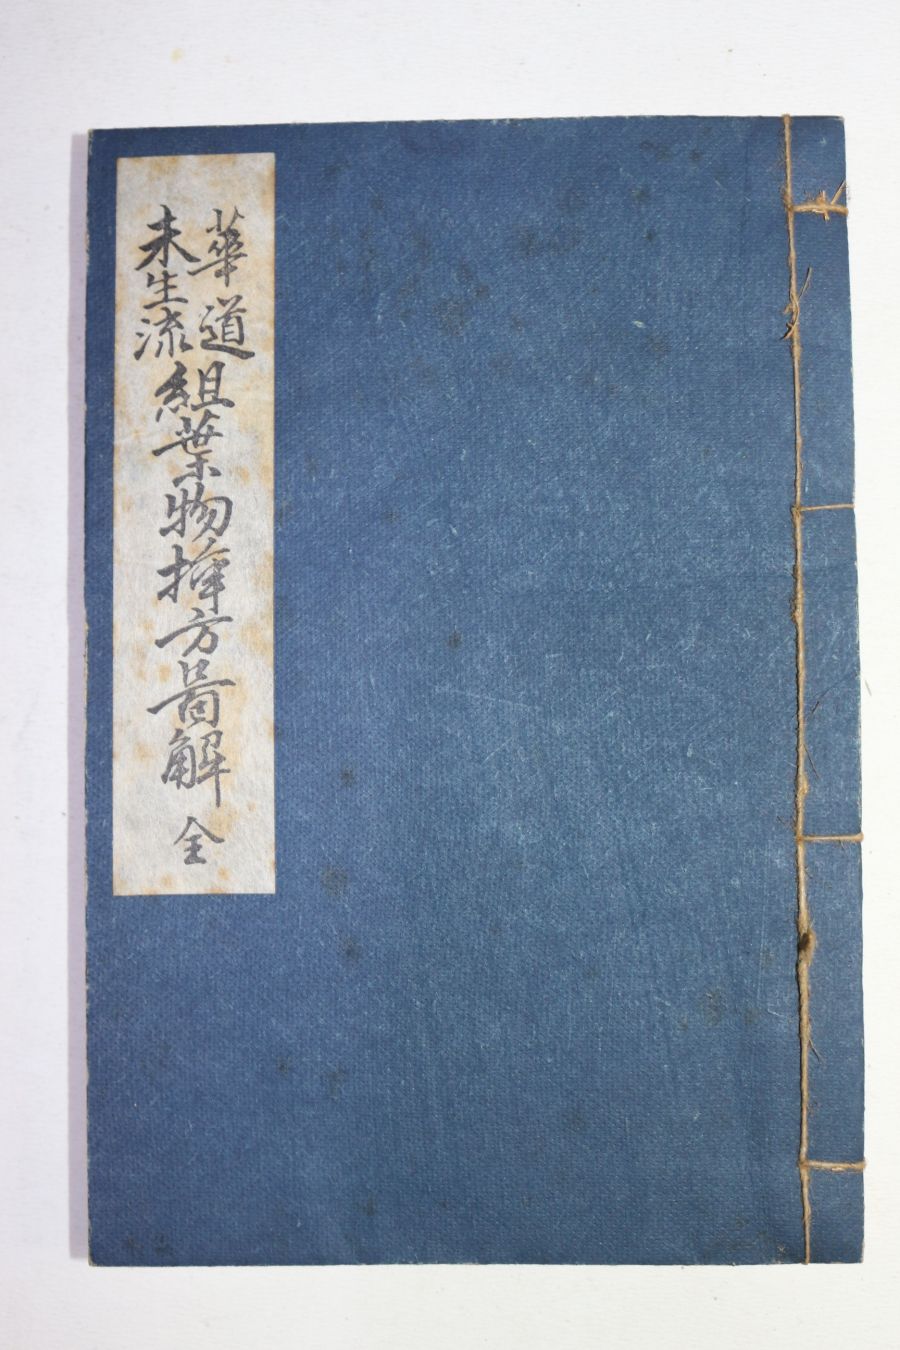 華道
未生流
組葉物挿方啚解 全